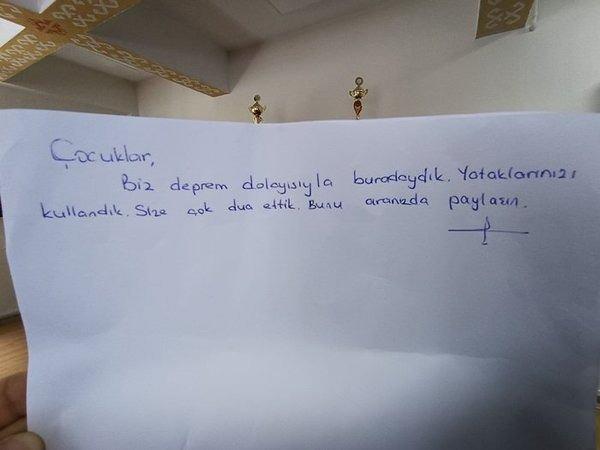 Çocuklar,
Biz deprem dolayısıyla buradaydık. Yataklarınızı
kullandık. Size çok dua ettik. Bunu aranızda paylaşın.